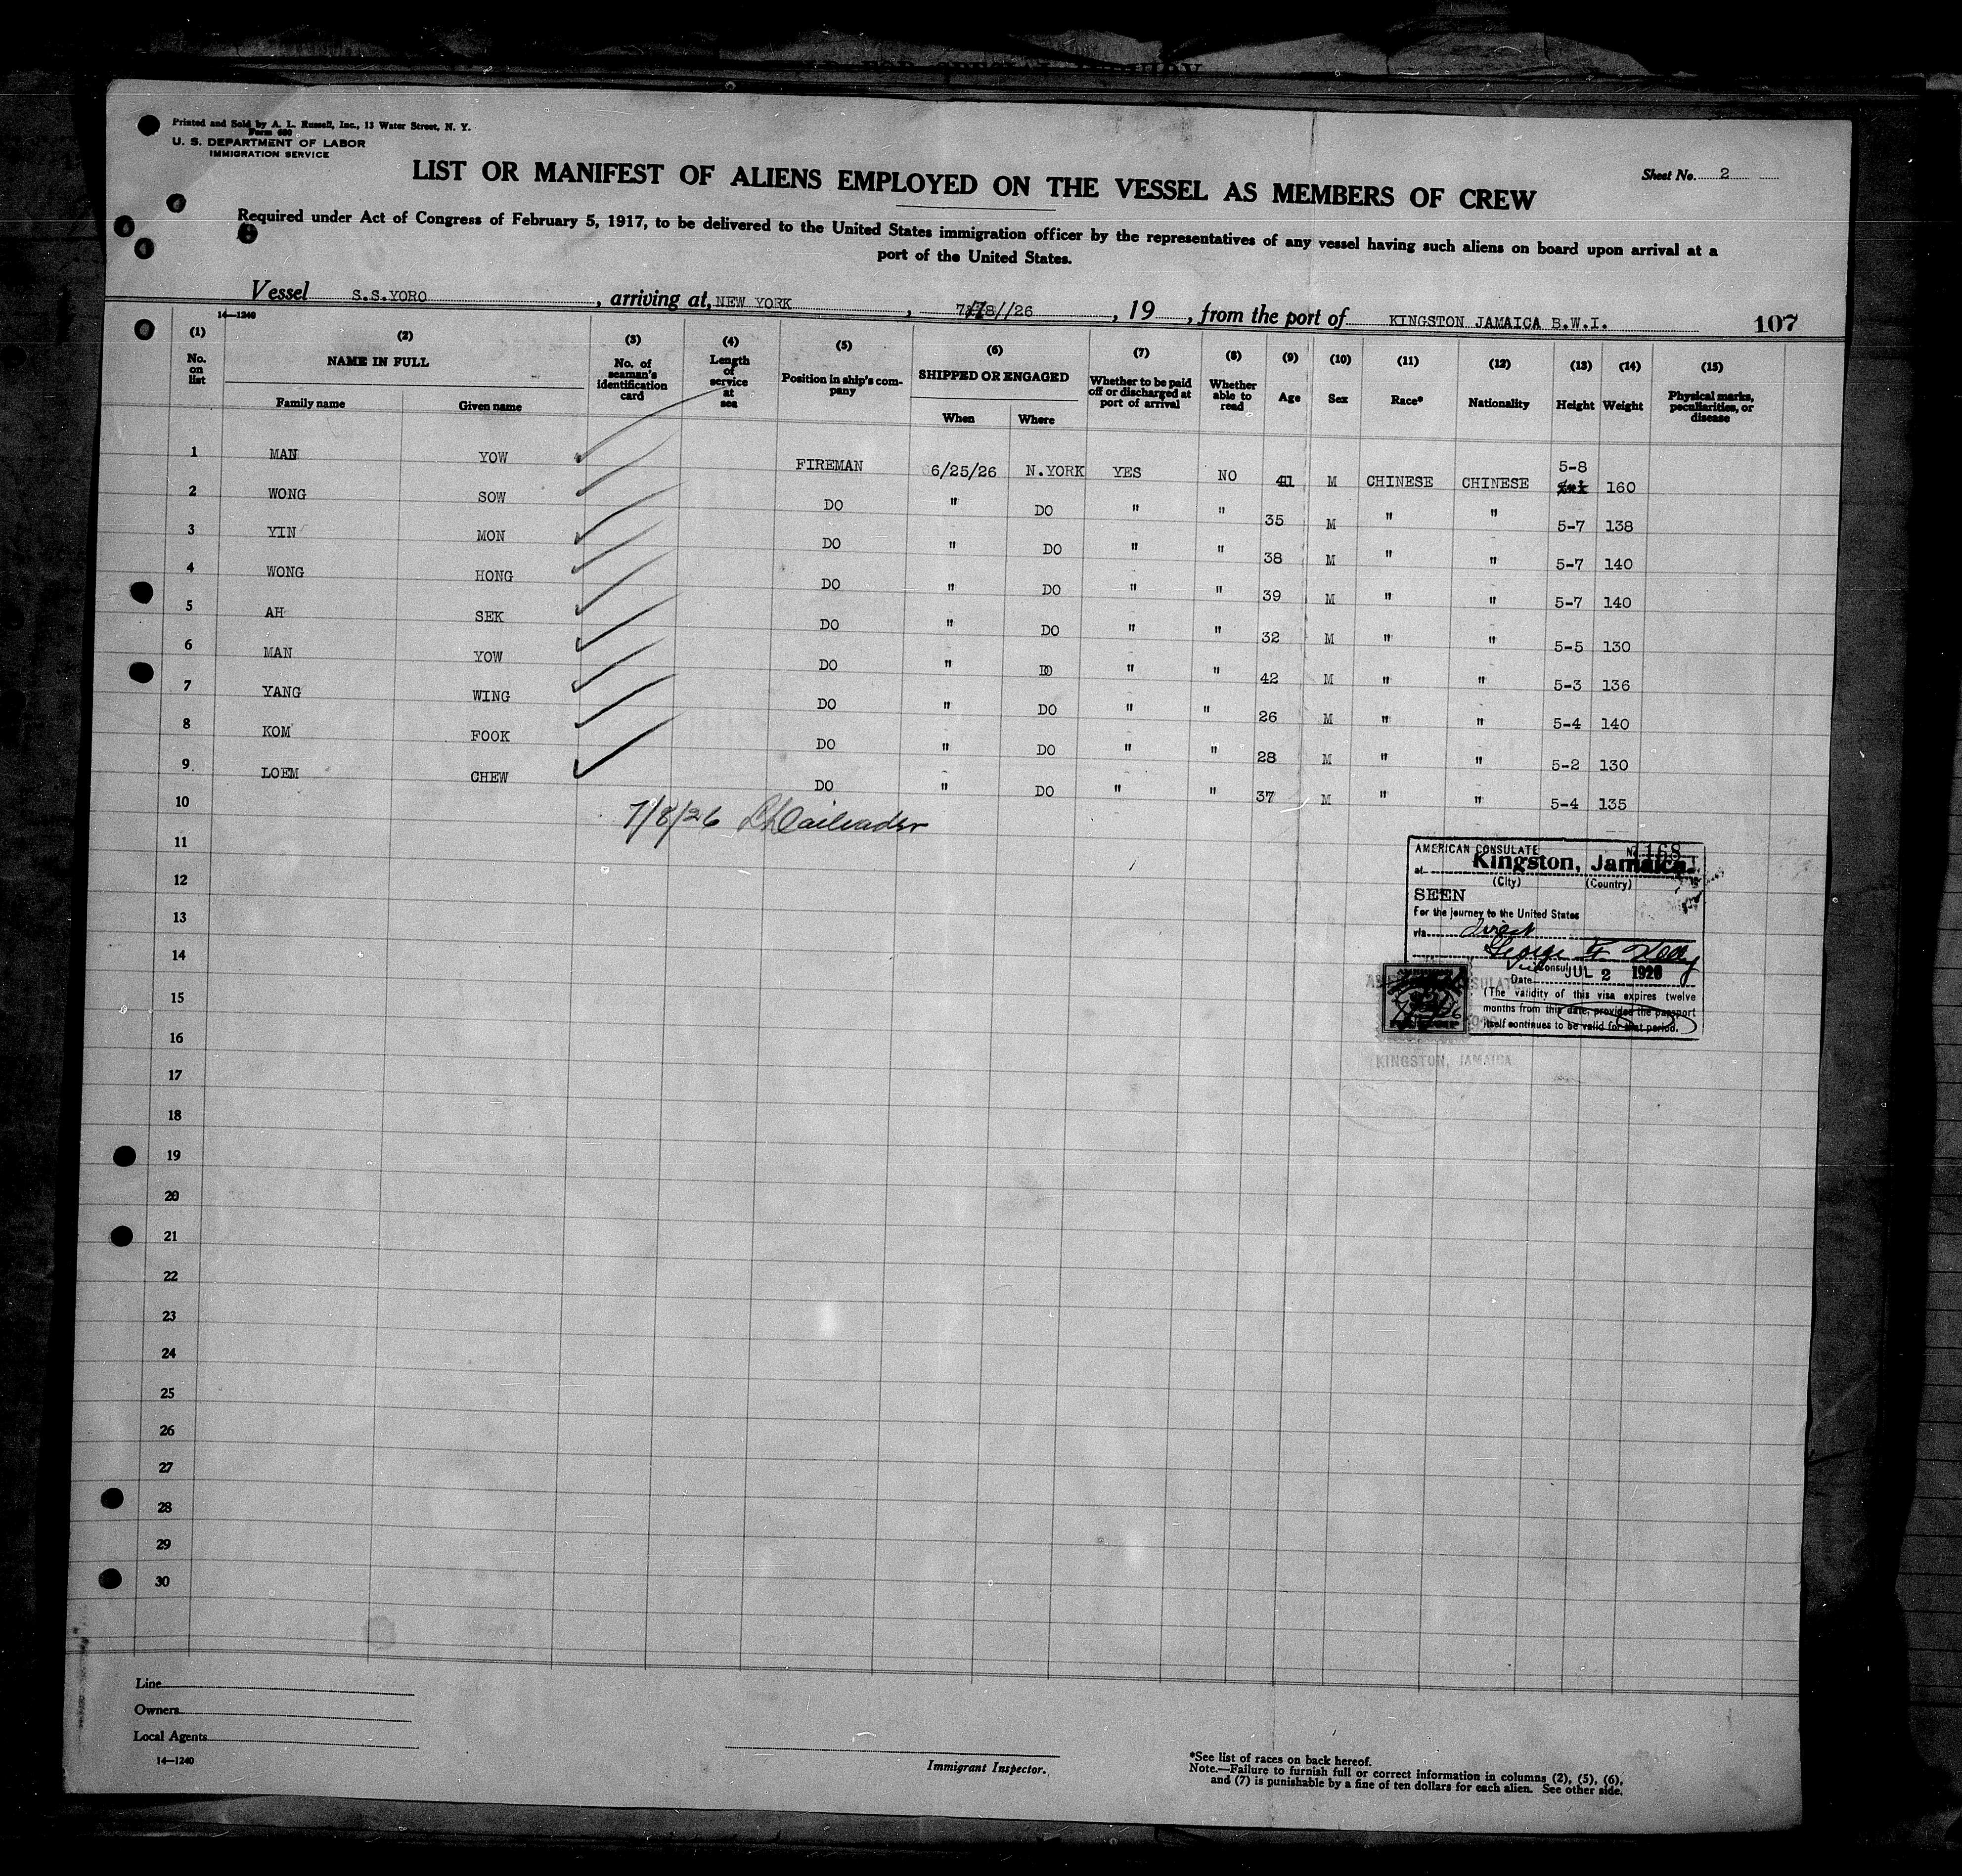 Printed and Sold by A. L. Russell, Inc., 13 Water Street, N. Y.
Form 680
U. S. DEPARTMENT OF LABOR
IMMIGRATION SERVICE
Sheet No. 2
LIST OR MANIFEST OF ALIENS EMPLOYED ON THE VESSEL AS MEMBERS OF CREW
Required under Act of Congress of February 5, 1917, to be delivered to the United States immigration officer by the representatives of any vessel having such aliens on board upon arrival at a
port of the United States.
Vessel S.S.YORO, arriving at, NEW YORK, 7/8//26, 19, from the port of KINGSTON JAMAICA B.W.I. 107
14—1240
(1) (2) (3) (4) (5) (6) (7) (8) (9) (10) (11) (12) (13) (14) (15)
No. on list NAME IN FULL No. of seaman's identification card Length of service at sea Position in ship's company SHIPPED OR ENGAGED Whether to be paid off or discharged at port of arrival Whether able to read Age Sex Race* Nationality Height Weight Physical marks, peculiarities, or disease
Family name Given name When Where
1 MAN YOW FIREMAN 6/25/26 N.YORK YES NO 41 M CHINESE CHINESE 5-8 160
2 WONG SOW DO " DO " " 35 M " " 5-7 138
3 YIN MON DO " DO " " 38 M " " 5-7 140
4 WONG HONG DO " DO " " 39 M " " 5-7 140
5 AH SEK DO " DO " " 32 M " " 5-5 130
6 MAN YOW DO " DO " " 42 M " " 5-3 136
7 YANG WING DO " DO " " 26 M " " 5-4 140
8 KOM FOOK DO " DO " " 28 M " " 5-2 130
9 LOEM CHEW DO " DO " " 37 M " " 5-4 135
10
7/8/26
11
12
13
14
15
16
17
18
19
20
21
22
23
24
25
26
27
28
29
30
AMERICAN CONSULATE No. 168
at Kingston, Jamaica.
(City) (Country)
SEEN
For the journey to the United States
via direct
George
Vice Consul
Date JUL 2 1926
(The validity of this visa expires twelve
months from this date, provided the passport
itself continues to be valid for that period.
KINGSTON, JAMAICA
Line
Owners
Local Agents
14—1240
Immigrant Inspector.
*See list of races on back hereof.
Note.—Failure to furnish full or correct information in columns (2), (5), (6),
and (7) is punishable by a fine of ten dollars for each alien. See other side.